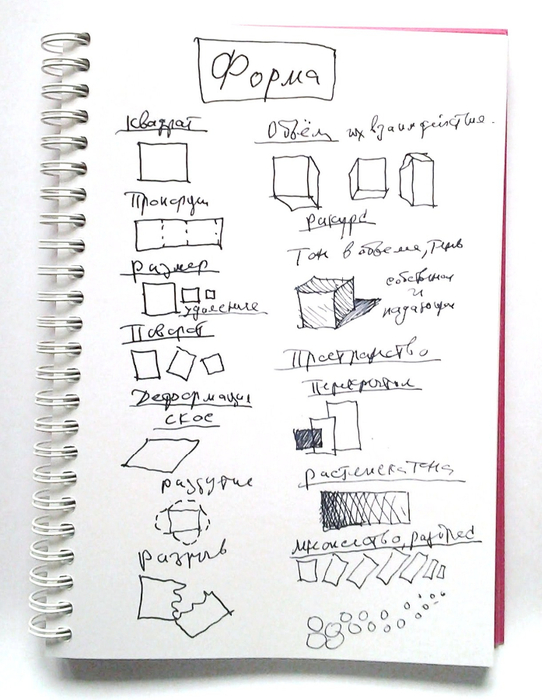 Форма
Квадрат
Пропорции
размер
удаление
Поворот
Деформация
скос
раздутие
разрыв
Объём их взаимодействие.
ракурс
Тон в объеме, тень
собственная
и
падающая
Пространство
Перекрытие
растяжка тона
множество,